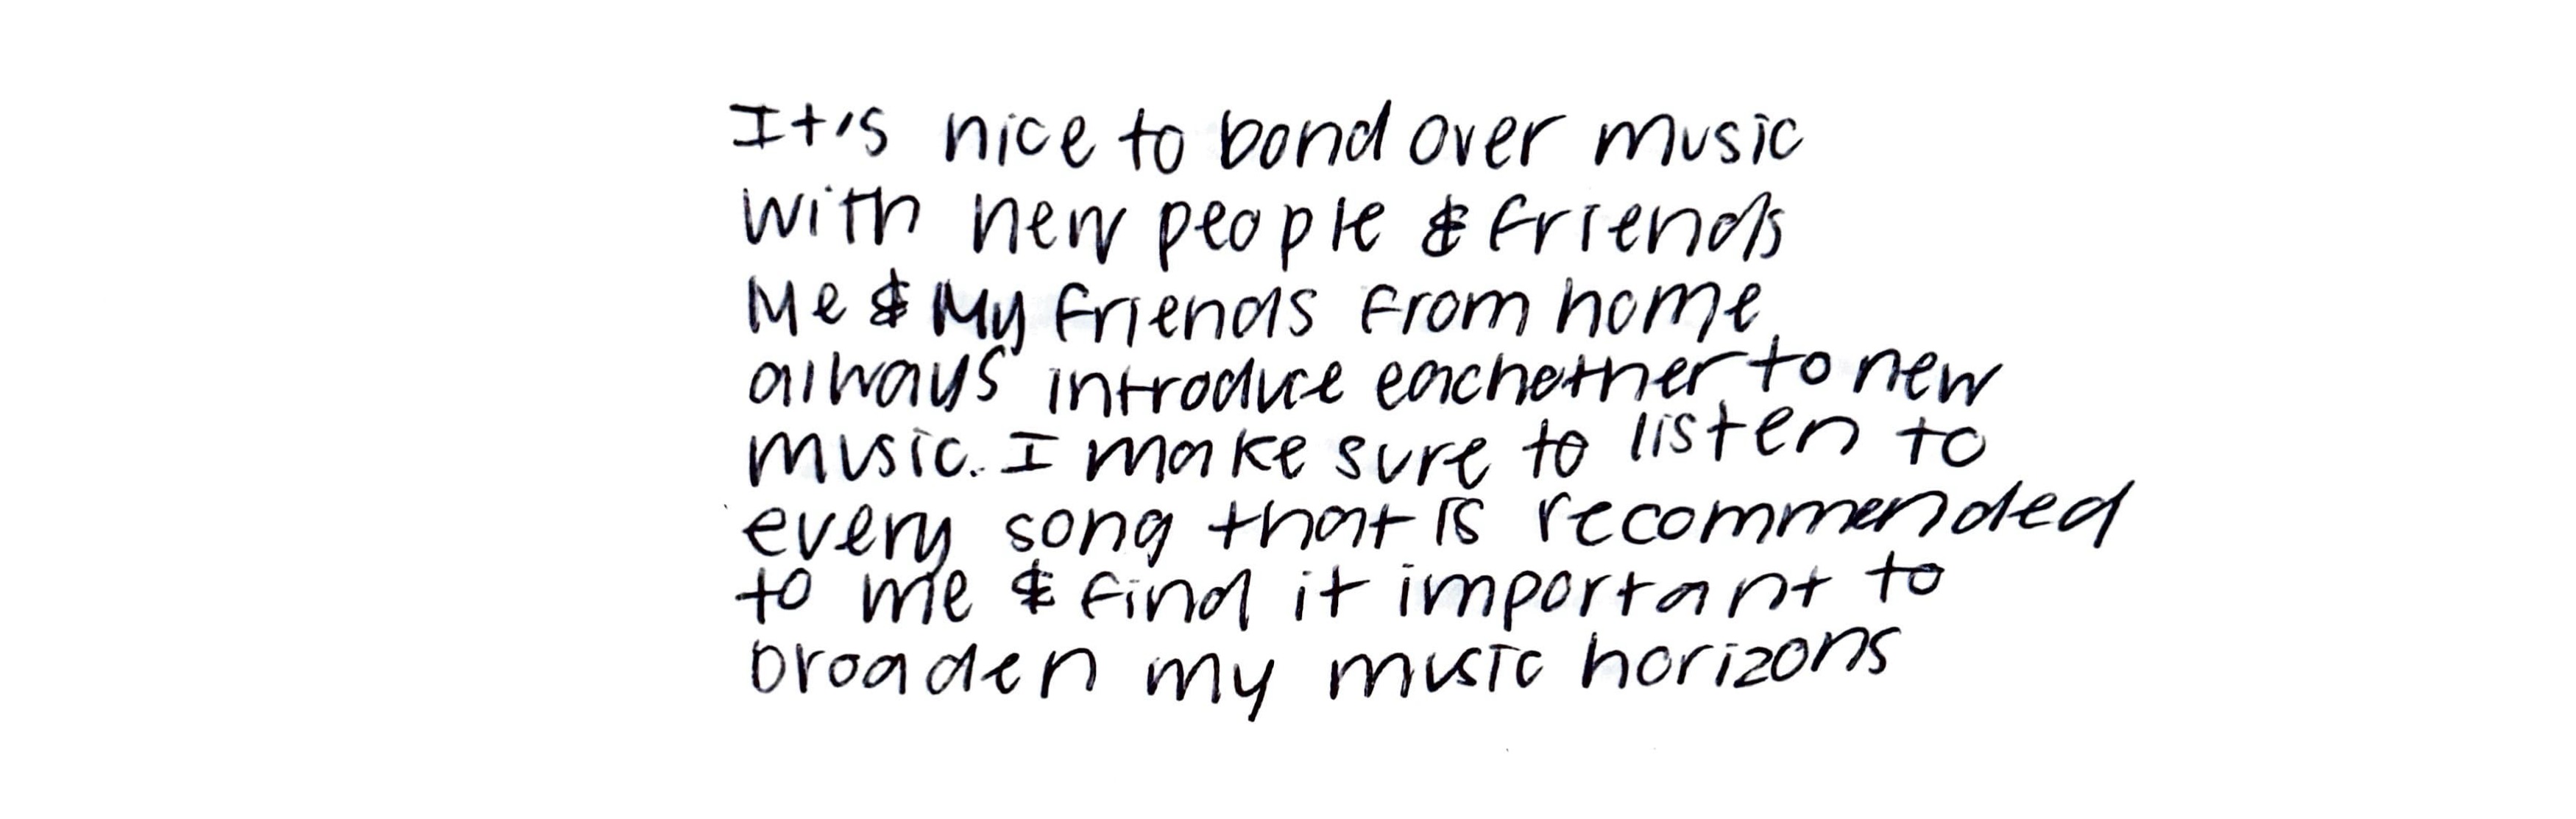 It's nice to bond over music
with new people & friends
Me & My friends from home
always introduce eachother to new
music. I make sure to listen to
every song that is recommended
to me & find it important to
broaden my music horizons